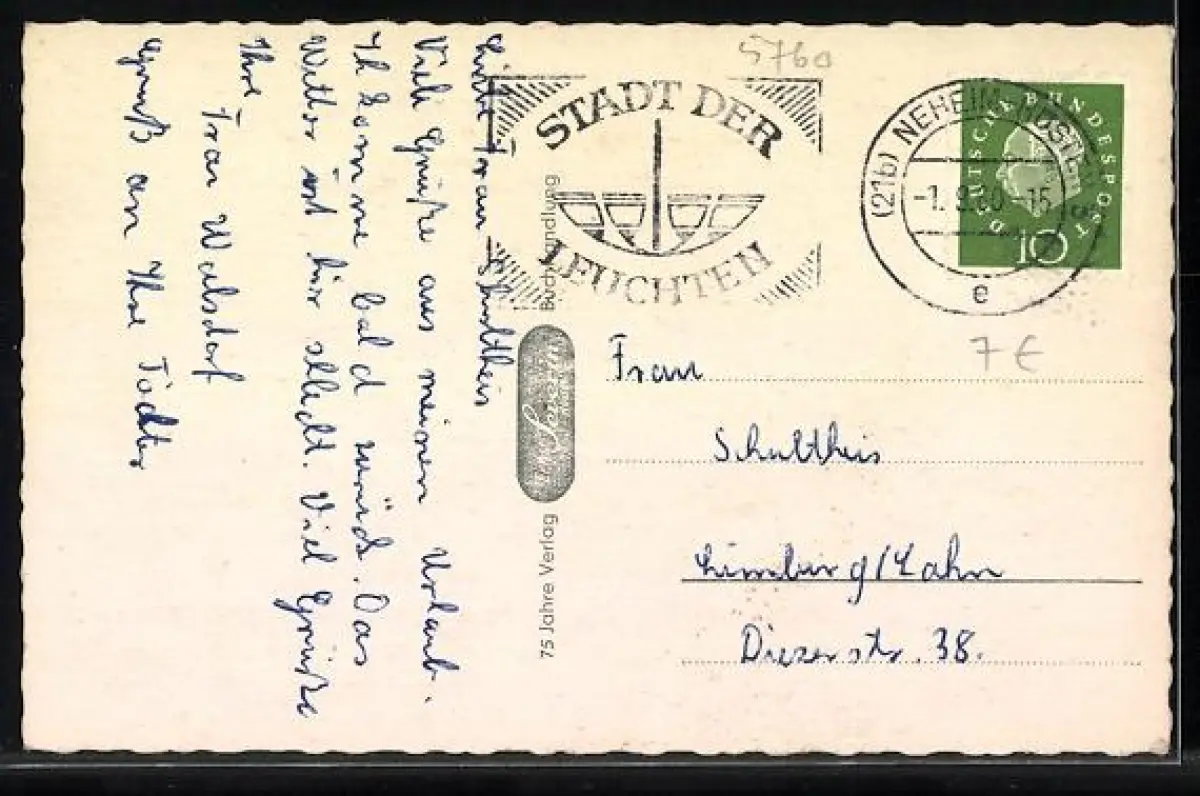 5760
STADT DER
LEUCHTEN
(21b) NEHEIM-HÜSTEN
-1.9.60-15
e
DEUTSCHE BUNDESPOST
10
7€
Liebe Frau Schultheis
Viele Grüße aus meinem Urlaub.
Ich komme bald zurück. Das
Wetter ist hier schlecht. Viel Grüße
Ihre
Frau Walsdorf
Gruß an Ihre Tochter
75 Jahre Verlag
Buchhandlung
Frau
Schultheis
Limburg/Lahn
Diezerstr. 38.